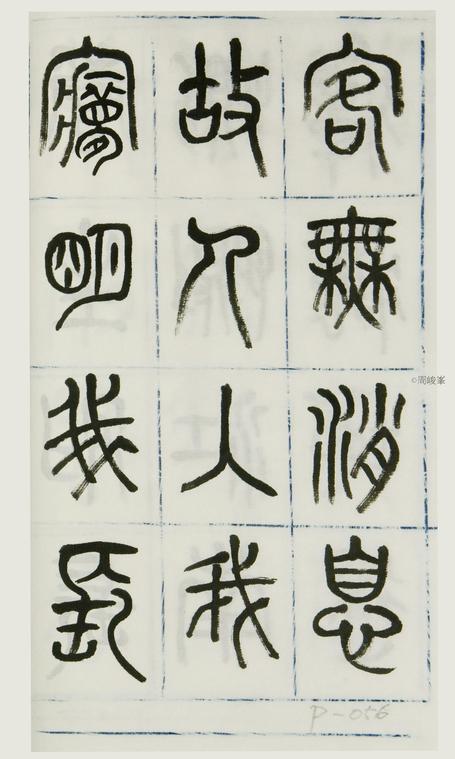 客無消息
故人入我
夢明我長
©周峻峯
P-056